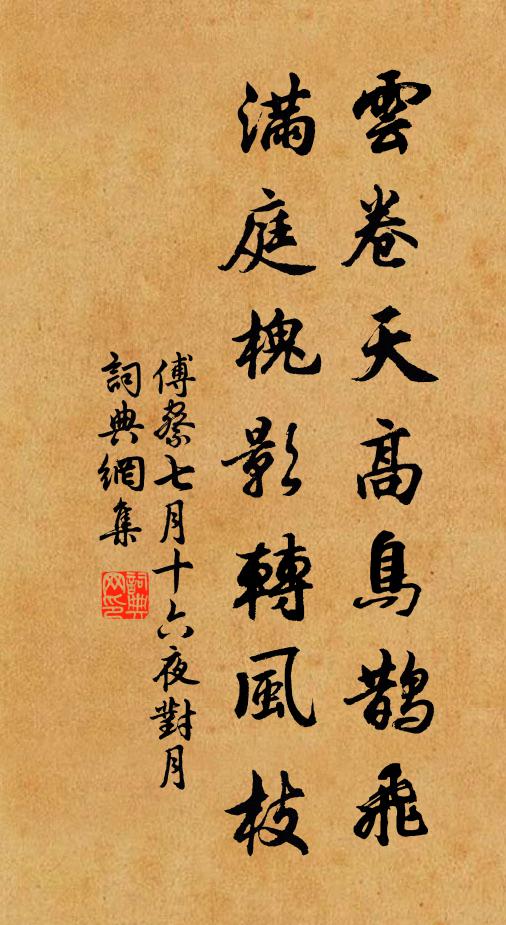 雲卷天高鳥鵲飛
滿庭槐影轉風枝
傅察七月十六夜對月
詞典網集
詞典网印